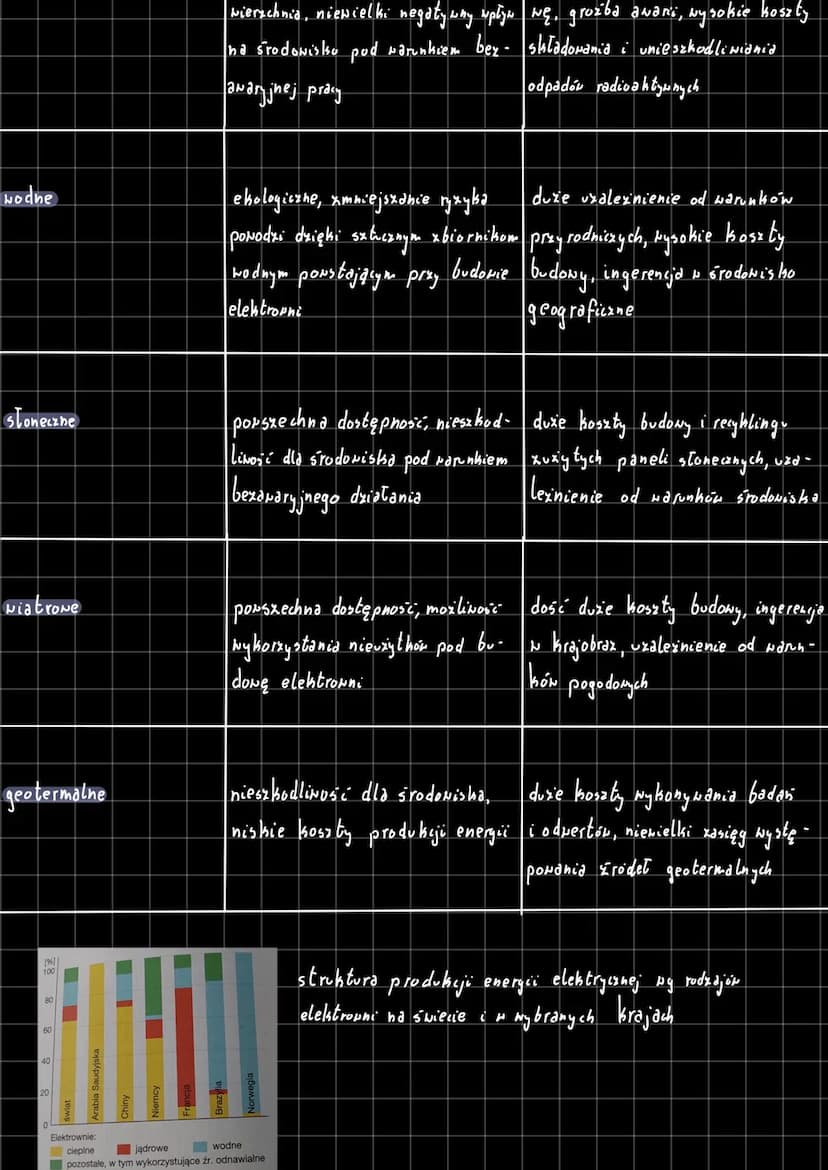 wierzchnia, niewielki negatywny wpływ
na środowisko pod warunkiem bez-
awaryjnej pracy
wę, groźba awarii, wysokie koszty
składowania i unieszkodliwiania
odpadów radioaktywnych
wodne
ekologiczne, zmniejszanie ryzyka
powodzi dzięki sztucznym zbiornikom
wodnym powstającym przy budowie
elektrowni
duże uzależnienie od warunków
przyrodniczych, wysokie koszty
budowy, ingerencja w środowisko
geograficzne
słoneczne
powszechna dostępność, nieszkod-
liwość dla środowiska pod warunkiem
bezawaryjnego działania
duże koszty budowy i recyklingu
zużytych paneli słonecznych, uza-
leżnienie od warunków środowiska
wiatrowe
powszechna dostępność, możliwość
wykorzystania nieużytków pod bu-
dowę elektrowni
dość duże koszty budowy, ingerencja
w krajobraz, uzależnienie od warun-
ków pogodowych
geotermalne
nieszkodliwość dla środowiska,
niskie koszty produkcji energii
duże koszty wykonywania badań
i odwertów, niewielki zasięg wystę-
powania źródeł geotermalnych
struktura produkcji energii elektrycznej wg rodzajów
elektrowni na świecie i w wybranych krajach
[%]
100
80
60
40
20
0
świat
Arabia Saudyjska
Chiny
Niemcy
Francja
Brazylia
Norwegia
Elektrownie:
cieplne jądrowe wodne
pozostałe, w tym wykorzystujące źr. odnawialne